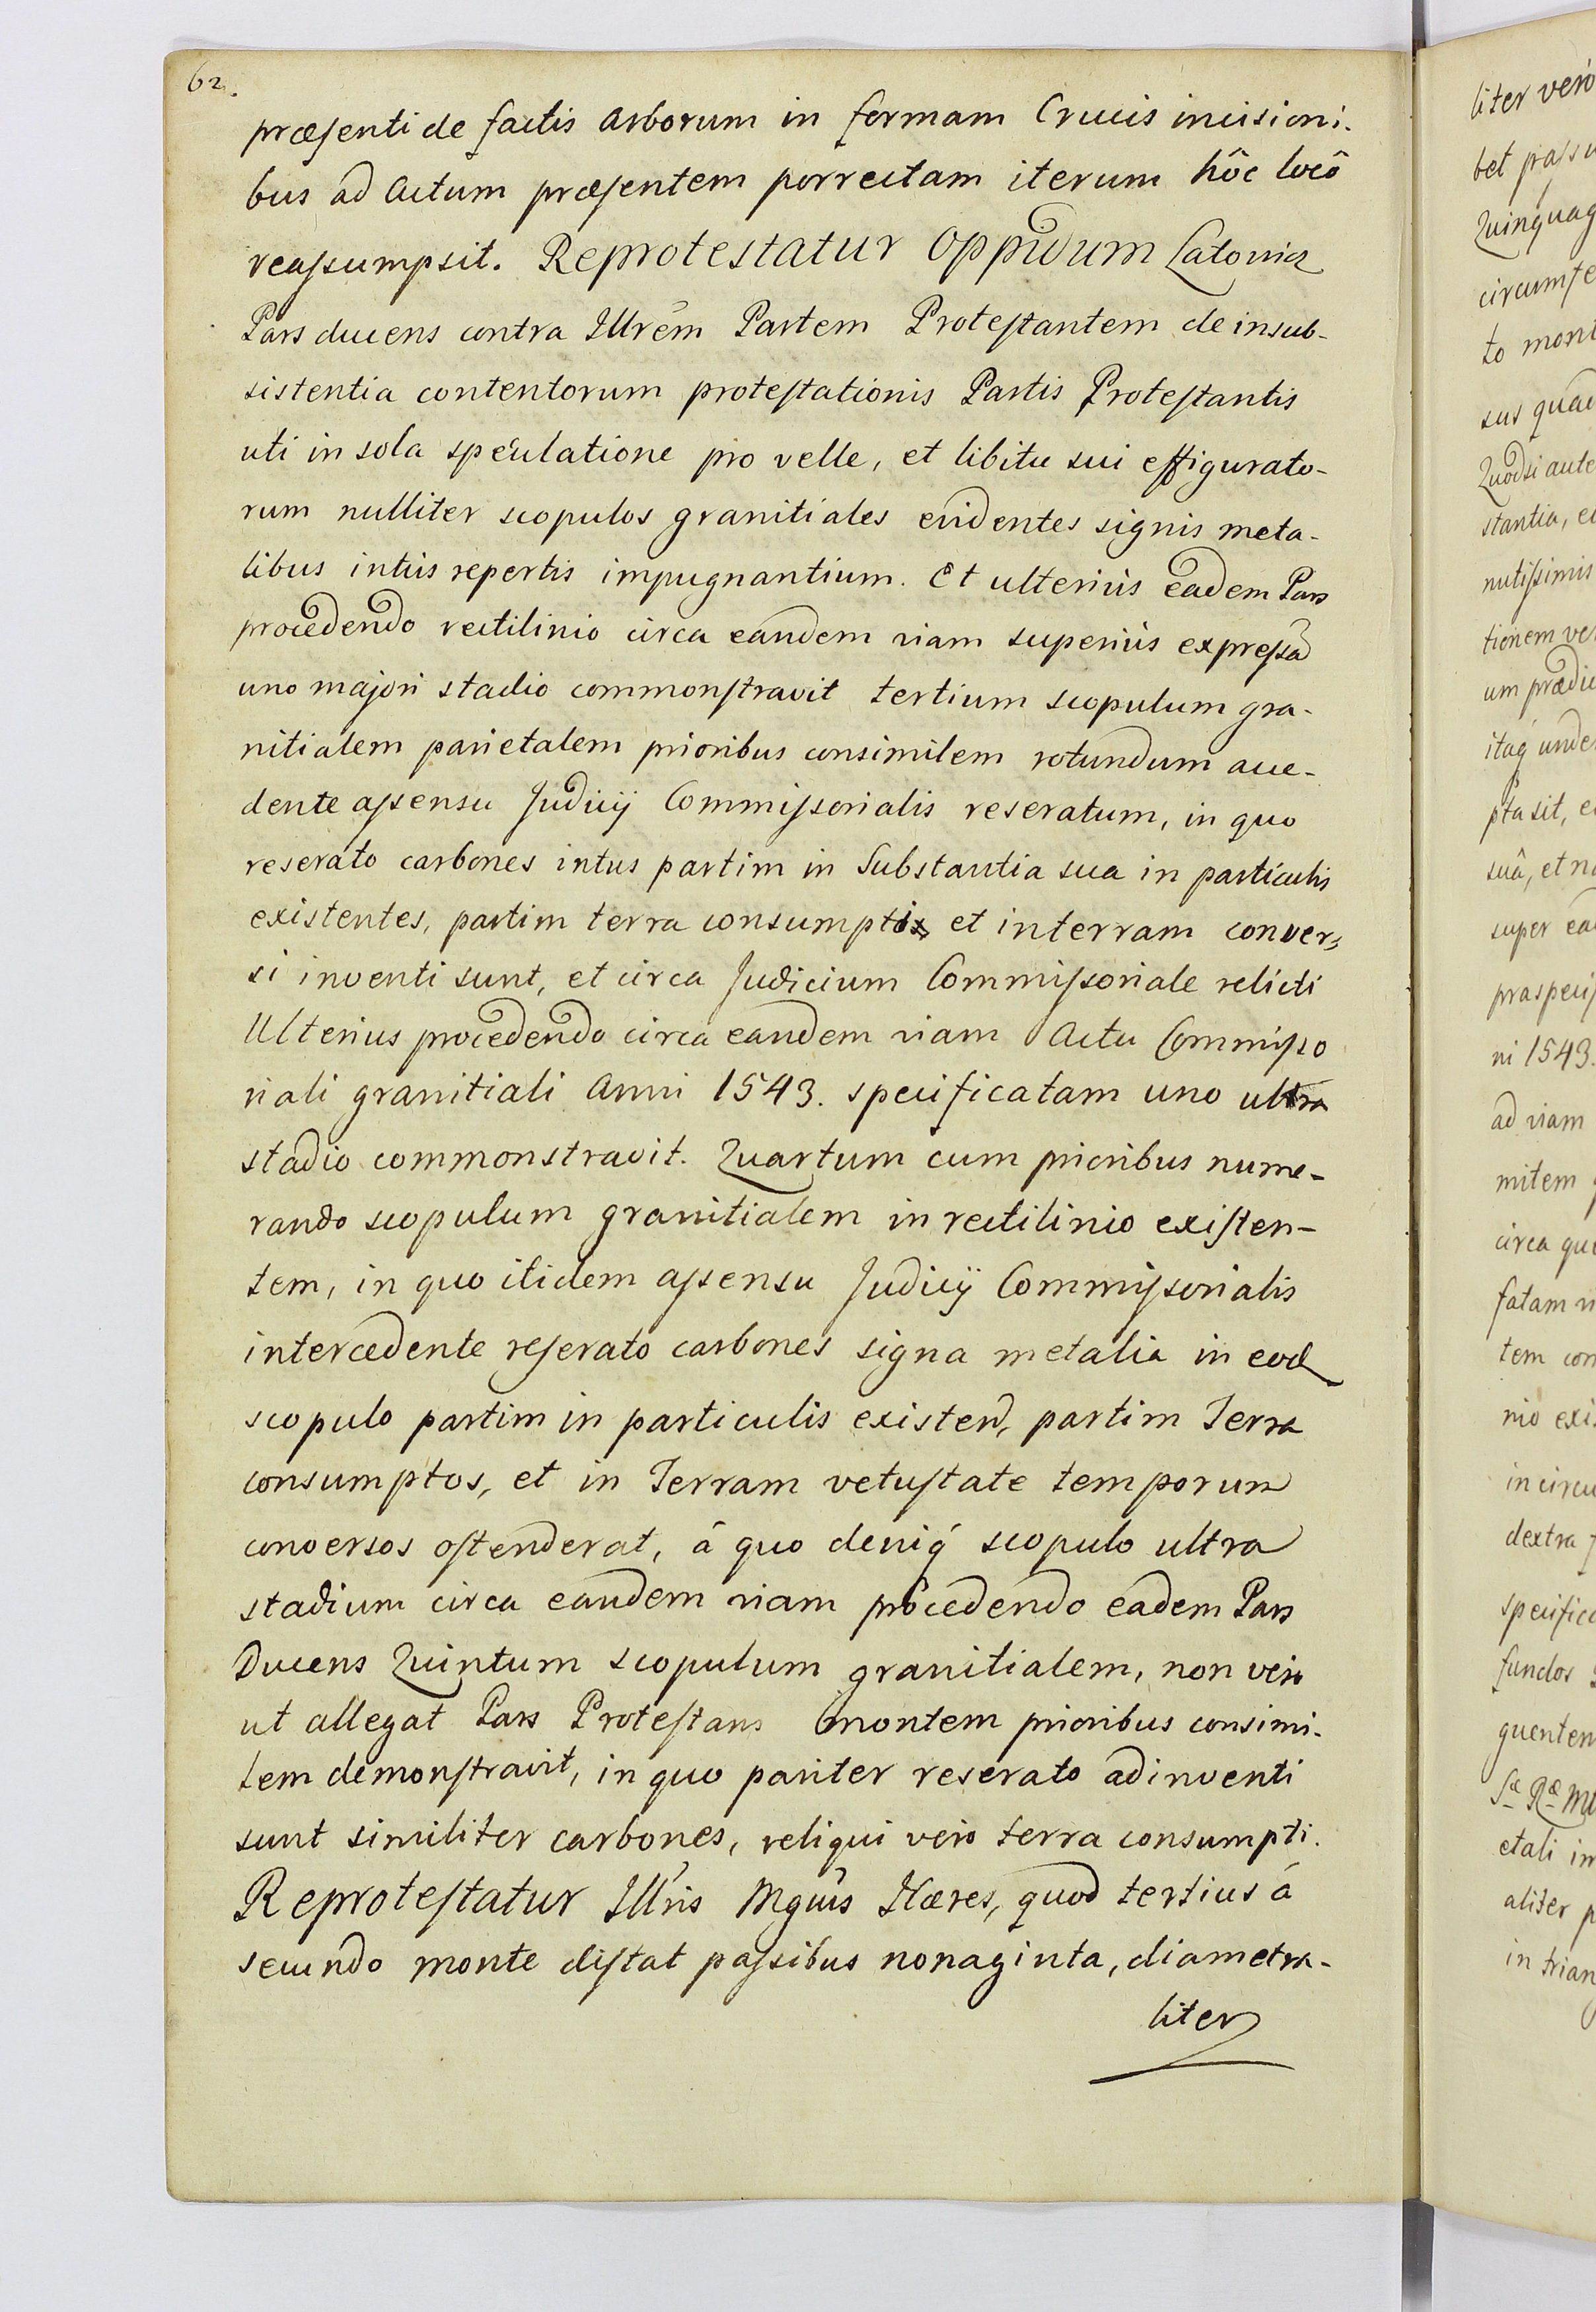 62.
præſenti de factis Arborum in formam Crucis incisioni-
bus ad Actum præſentem porrectam iterum hôc locô
reaſsumpsit. Reprotestatur Oppidum Latovicz
Pars ducens contra Illrēm Partem Proteſtantem de insub-
sistentia contentorum proteſtationis Partis Proteſtantis
uti in sola speculatione pro velle, et libitu sui effigurato-
rum nulliter scopulos granitiales evidentes signis meta-
libus intús repertis impugnantium. Et ulteriús eadem Pars
procedendo rectilinio circa eandem viam superiús expreſsā
uno majori stadio commonſtravit tertium scopulum gra-
nitialem parietalem prioribus consimilem rotundum acce-
dente aſsensu Judicÿ Commiſsorialis reseratum, in quo
reserato carbones intus partim in Substantia sua in particulis
existentes, partim terra consumpti et in terram conver-
si inventi sunt, et circa Judicium Commiſsoriale relicti
Ulterius procedendo circa eandem viam Actu Commiſso
riali granitiali Anni 1543. specificatam uno ultra
stadio commonstravit. Quartum cum prioribus nume-
rando scopulum granitialem in rectilinio exiſten-
tem, in quo itidem aſsensu Judicÿ Commiſsorialis
intercedente reſerato carbones signa metalia in eod
scopulo partim in particulis existen, partim Terra
consumptos, et in Terram vetuſtate temporum
conversos oſtenderat, á quo deniq́ scopulo ultra
stadium circa eandem viam procedendo eadem Pars
Ducens Quintum scopulum granitialem, non vero
ut allegat Pars Proteſtans montem prioribus consimi-
lem demonſtravit, in quo pariter reserato adinventi
sunt similiter carbones, reliqui vero terra consumpti.
Reproteſtatur Illr̃is Mgñus Hæres, quod tertius á
secundo monte diſtat paſsibus nonaginta, diametra-
liter
liter vero
bet paſsu
Quinquag
circumfe
to mont
sus quad
Quodsi aute
stantia, e
nutiſsimis
tionem ve
um prædic
itaq́ unde
pta sit, e
suâ, et n
super ea
præspecif
ni 1543.
ad viam
mitem
circa qu
fatam v
tem con
nio exi
in circu
dextra
specific
fundos
guentem
Sæ Ræ M
etali in
aliter p
in trian